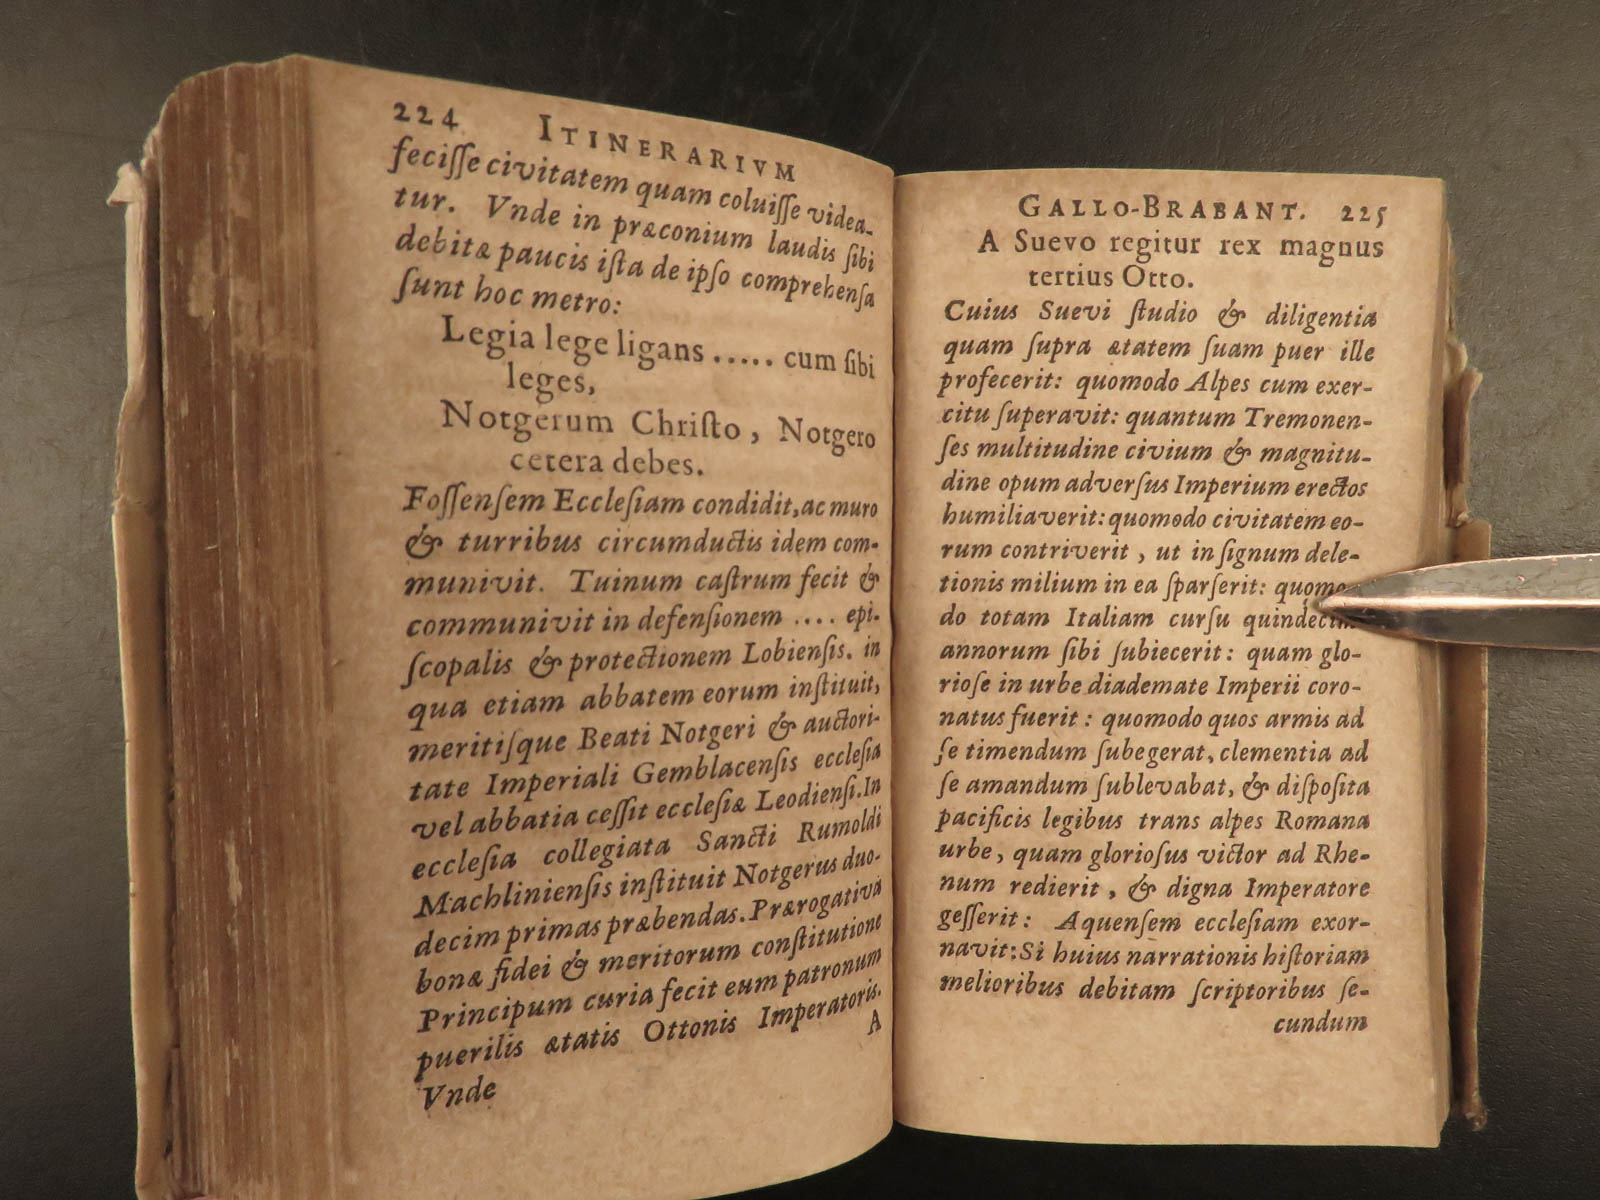 224 ITINERARIVM
feciſſe civitatem quam coluiſſe videa-
tur. Vnde in præconium laudis ſibi
debitæ paucis iſta de ipſo comprehenſa
ſunt hoc metro:
Legia lege ligans ..... cum ſibi
leges,
Notgerum Chriſto, Notgero
cetera debes.
Foſſenſem Eccleſiam condidit, ac muro
& turribus circumductis idem com-
munivit. Tuinum caſtrum fecit &
communivit in defenſionem .... epi-
ſcopalis & protectionem Lobienſis. in
qua etiam abbatem eorum inſtituit,
meritiſque Beati Notgeri & auctori-
tate Imperiali Gemblacenſis eccleſia
vel abbatia ceſſit eccleſiæ Leodienſi. In
eccleſia collegiata Sancti Rumoldi
Machlinienſis inſtituit Notgerus duo-
decim primas præbendas. Prærogativâ
bonæ fidei & meritorum conſtitutione
Principum curia fecit eum patronum
puerilis ætatis Ottonis Imperatoris.
Vnde A
GALLO-BRABANT. 225
A Suevo regitur rex magnus
tertius Otto.
Cuius Suevi ſtudio & diligentia
quam ſupra ætatem ſuam puer ille
profecerit: quomodo Alpes cum exer-
citu ſuperavit: quantum Tremonen-
ſes multitudine civium & magnitu-
dine opum adverſus Imperium erectos
humiliaverit: quomodo civitatem eo-
rum contriverit, ut in ſignum dele-
tionis milium in ea ſparſerit: quomo-
do totam Italiam curſu quindecim
annorum ſibi ſubiecerit: quam glo-
rioſe in urbe diademate Imperii coro-
natus fuerit: quomodo quos armis ad
ſe timendum ſubegerat, clementia ad
ſe amandum ſublevabat, & diſpoſita
pacificis legibus trans alpes Romana
urbe, quam glorioſus victor ad Rhe-
num redierit, & digna Imperatore
geſſerit: Aquenſem eccleſiam exor-
navit: Si huius narrationis hiſtoriam
melioribus debitam ſcriptoribus ſe-
cundum